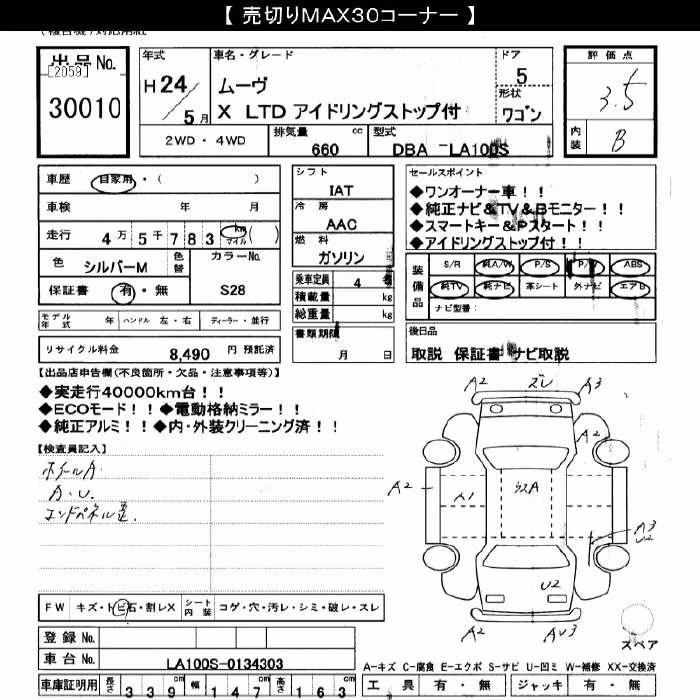 【 売切りMAX30コーナー 】
出品 No.
[2059]
30010
年式
H 24/5 月
車名・グレード
ムーヴ
X LTD アイドリングストップ付
ドア
5
形状
ワゴン
評価点
3.5
内装
B
2WD ・ 4WD
排気量
660 cc
型式
DBA -LA100S
車歴
自家用 ・ ( )
車検 年 月
走行 4 万 5 千 7 8 3 km マイル ( )
色
シルバーM
色替
カラーNo.
S28
保証書
有 ・ 無
モデル年式 年
ハンドル 左・右
ディーラー・並行
リサイクル料金 8,490 円 預託済
シフト
IAT
冷房
AAC
燃料
ガソリン
乗車定員 4
積載量 kg
総重量 kg
書類期限
月 日
セールスポイント
◆ワンオーナー車！！
◆純正ナビ&TV&Bモニター！！
◆スマートキー&Pスタート！！
◆アイドリングストップ付！！
装備品
S/R 純A/W P/S P/W ABS
純TV 純ナビ 本シート 外ナビ エアB
ナビ型番：
後日品
取説 保証書 ナビ取説
【出品店申告欄(不良箇所・欠品・注意事項等)】
◆実走行40000km台！！
◆ECOモード！！◆電動格納ミラー！！
◆純正アルミ！！◆内・外装クリーニング済！！
【検査員記入】
ホイールA
A・U.
エンドパネル歪.
A2 ズレ A3
A2
A2 A1 ガラスA
A3
U2
U2
A2 AU3
スペア
FW キズ・トビ石・割レX
シート内装 コゲ・穴・汚レ・シミ・破レ・スレ
登録 No.
車台 No. LA100S-0134303
A-キズ C-腐食 E-エクボ S-サビ U-凹ミ W-補修 XX-交換済
車庫証明用 長さ 339 cm 幅 147 cm 高さ 163 cm
工具 有・無 ジャッキ 有・無